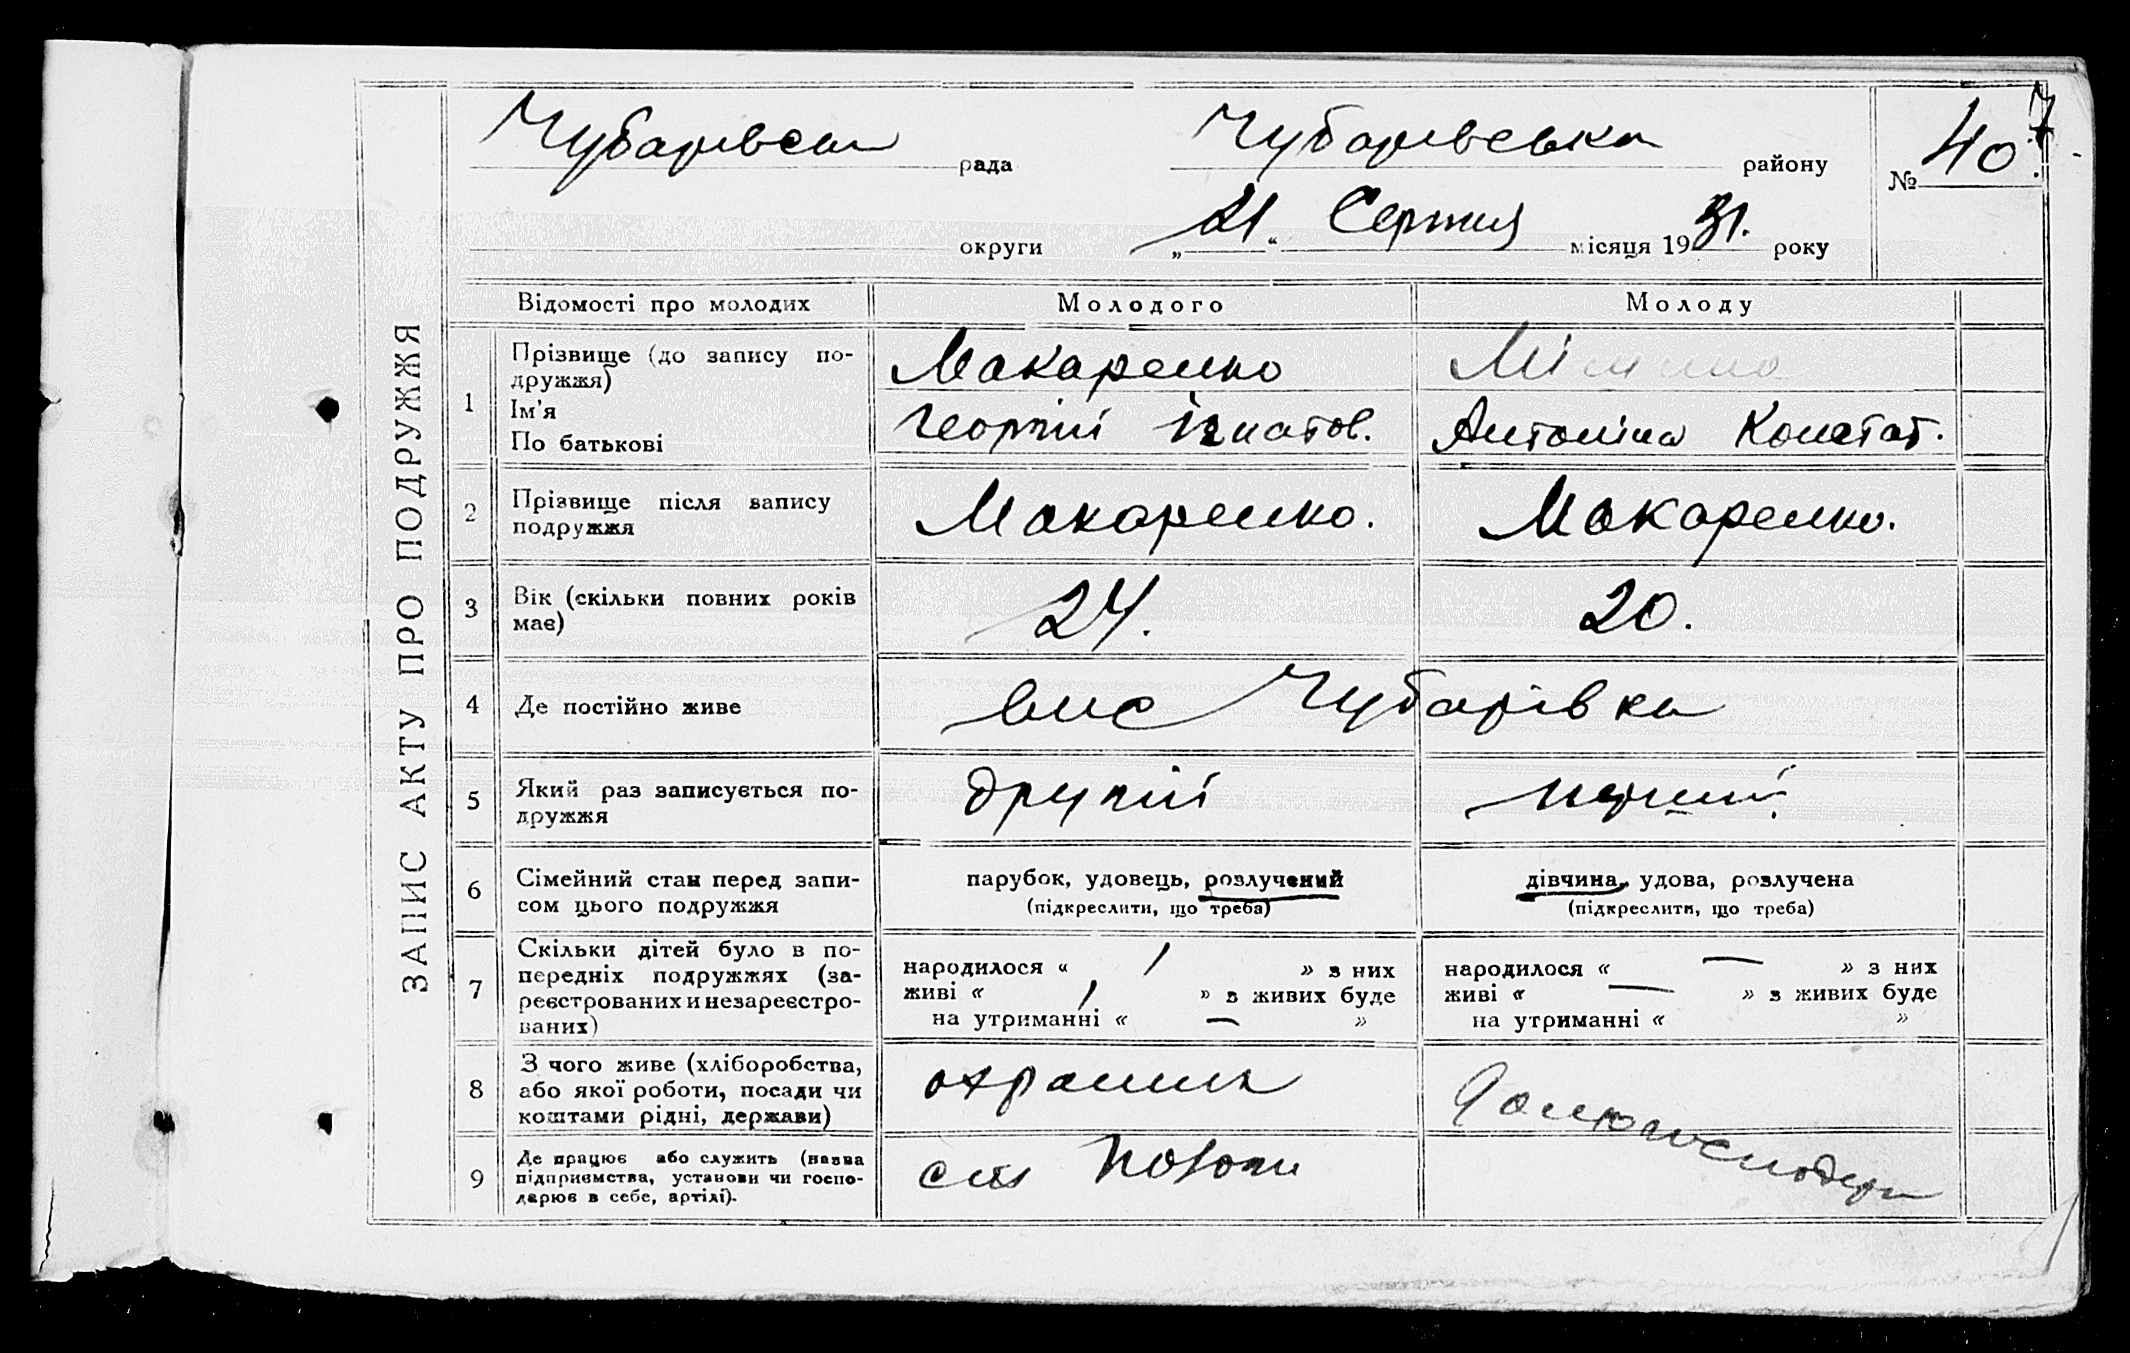 ЗАПИС АКТУ ПРО ПОДРУЖЖЯ
7
Чубарівська рада Чубарівська району № 40.
округи „21“ Серпня місяця 1931. року
Відомості про молодих Молодого Молоду
1 Прізвище (до запису по-
дружжя) Макаренко
Ім'я
По батькові Георгій Ігнатов. Антоніна Констат.
2 Прізвище після запису
подружжя Макаренко. Макаренко.
3 Вік (скільки повних років
має) 24. 20.
4 Де постійно живе Чубарівка
5 Який раз записується по-
дружжя другий перший.
6 Сімейний стан перед запи-
сом цього подружжя парубок, удовець, розлучений дівчина, удова, розлучена
(підкреслити, що треба) (підкреслити, що треба)
7 Скільки дітей було в по-
передніх подружжях (за-
реєстрованих и незареєстро-
ваних)
народилося « 1 » з них
живі « 1 » з живих буде
на утриманні « — »
народилося « — » з них
живі « — » з живих буде
на утриманні « »
8 З чого живе (хліборобства,
або якої роботи, посади чи
коштами рідні, держави) охраник
9 Де працює або служить (назва
підприємства, установи чи госпо-
дарює в себе, артілі).